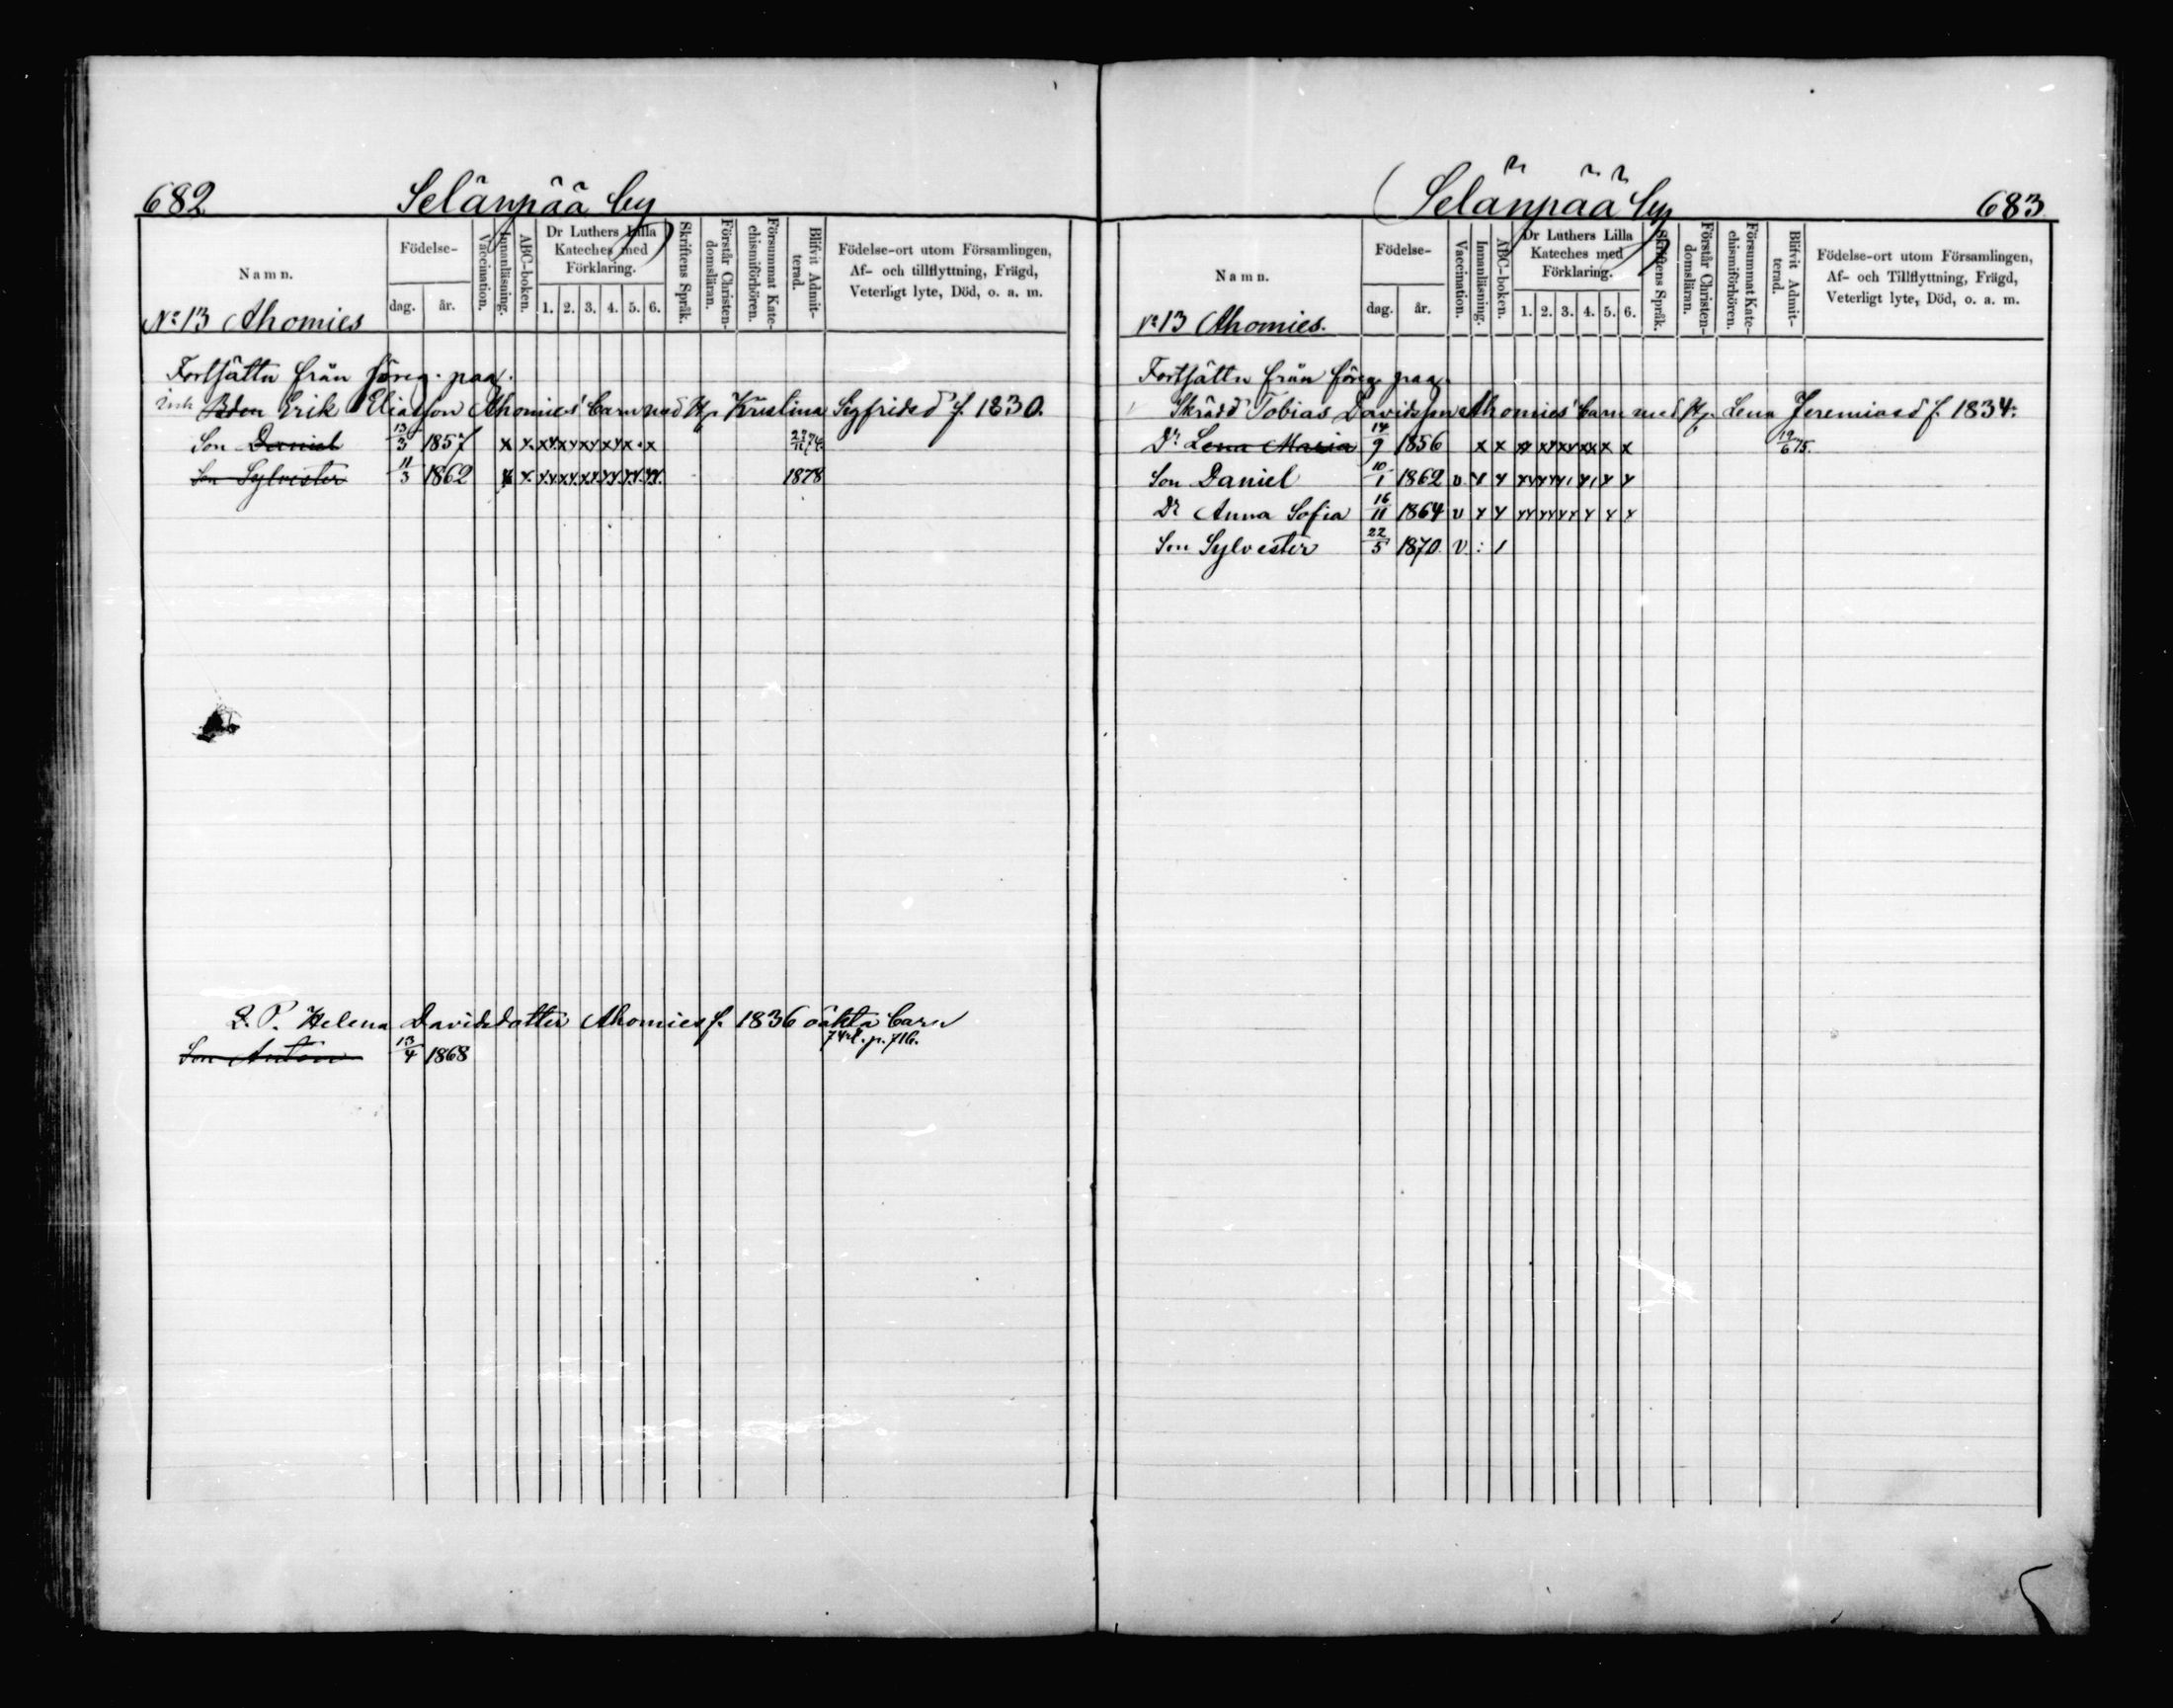 682 Selänpää by
Namn. Födelse- dag. år. Vaccination. Innanläsning. ABC-boken. Dr Luthers Lilla Kateches med Förklaring. 1. 2. 3. 4. 5. 6. Skriftens Språk. Förstår Christen-domsläran. Försummat Kate-chismiförhören. Blifvit Admit-terad. Födelse-ort utom Församlingen, Af- och tillflyttning, Frägd, Veterligt lyte, Död, o. a. m.
No 13 Ahomies
Fortsättn från föreg. pag.
Inh Bden Erik Eliasson Ahomies' barn med H. Kristina Sigfridsd f. 1830.
Son Daniel 13/3 1857 x x x x x x x x x x x x 27/12 74
Son Sylvester 11/3 1862 x x x x x x x x x x x x x 1878
L. P. Helena Davidsdotter Ahomies f. 1836 oäkta barn
Son Anton 13/4 1868 74 fl. p. 716.
Selänpää by 683
Namn. Födelse- dag. år. Vaccination. Innanläsning. ABC-boken. Dr Luthers Lilla Kateches med Förklaring. 1. 2. 3. 4. 5. 6. Skriftens Språk. Förstår Christen-domsläran. Försummat Kate-chismiförhören. Blifvit Admit-terad. Födelse-ort utom Församlingen, Af- och Tillflyttning, Frägd, Veterligt lyte, Död, o. a. m.
No 13 Ahomies.
Fortsättn från föreg. pag.
Skrädd Tobias Davidsson Ahomies' barn med H. Lena Jeremiasd f. 1834.
Dr Lena Maria 14/9 1856 x x x x x x x x x x x 19/6 75.
Son Daniel 10/1 1862 v x x x x x x x x x x
Dr Anna Sofia 16/11 1864 v x x x x x x x x x x
Son Sylvester 22/5 1870 v : 1